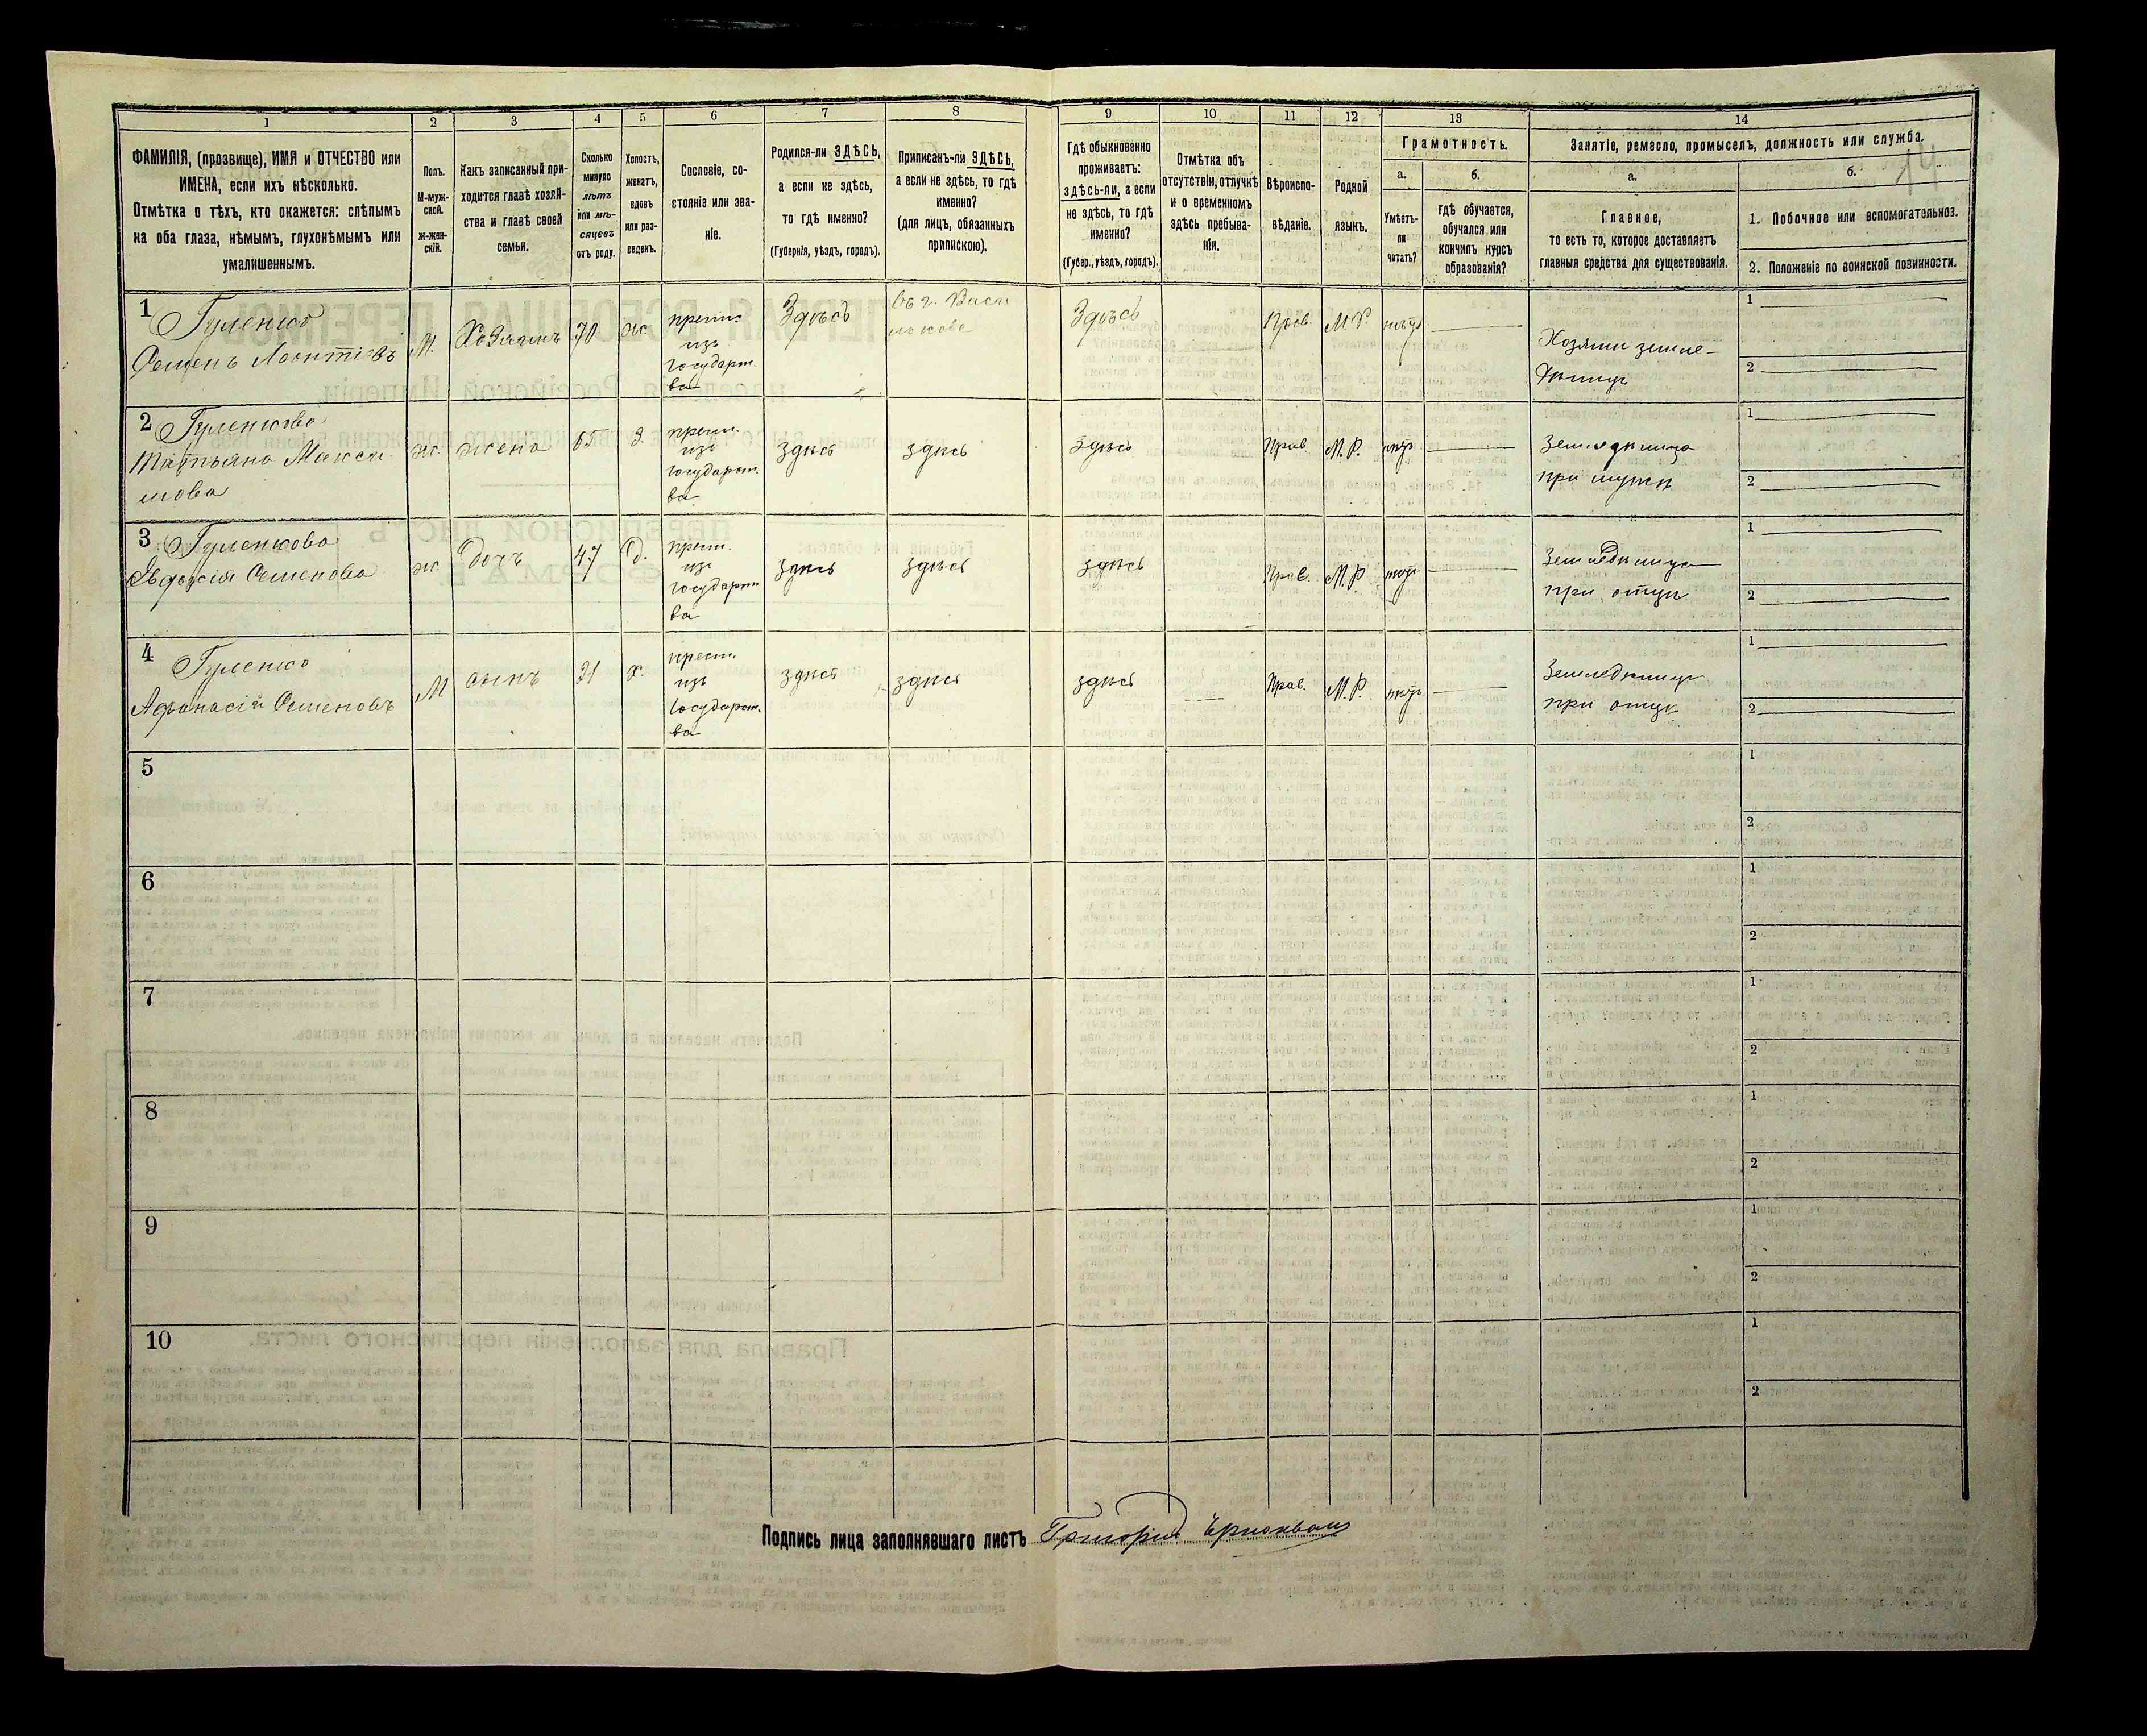 1 2 3 4 5 6 7 8 9 10 11 12 13 14
ФАМИЛІЯ, (прозвище), ИМЯ и ОТЧЕСТВО или
ИМЕНА, если ихъ нѣсколько.
Отмѣтка о тѣхъ, кто окажется: слѣпымъ
на оба глаза, нѣмымъ, глухонѣмымъ или
умалишеннымъ.
Полъ.
М-муж-
ской.
Ж-жен-
скій.
Какъ записанный при-
ходится главѣ хозяй-
ства и главѣ своей
семьи.
Сколько
минуло
лѣтъ
или мѣ-
сяцевъ
отъ роду.
Холостъ,
женатъ,
вдовъ
или раз-
веденъ.
Сословіе, со-
стояніе или зва-
ніе.
Родился-ли ЗДѢСЬ,
а если не здѣсь,
то гдѣ именно?
(Губернія, уѣздъ, городъ).
Приписанъ-ли ЗДѢСЬ,
а если не здѣсь, то гдѣ
именно?
(для лицъ, обязанныхъ
припискою).
Гдѣ обыкновенно
проживаетъ:
здѣсь-ли, а если
не здѣсь, то гдѣ
именно?
(Губер., уѣздъ, городъ).
Отмѣтка объ
отсутствіи, отлучкѣ
и о временномъ
здѣсь пребыва-
ніи.
Вѣроиспо-
вѣданіе.
Родной
языкъ.
Грамотность.
а.
Умѣетъ-
ли
читать?
б.
гдѣ обучается,
обучался или
кончилъ курсъ
образованія?
Занятіе, ремесло, промыселъ, должность или служба.
а.
Главное,
то есть то, которое доставляетъ
главныя средства для существованія.
б.
14
1. Побочное или вспомогательное.
2. Положеніе по воинской повинности.
1
Гуленко
Семенъ Леонтіевъ
М.
Хозяинъ
70
ж
крест.
изъ
государст.
ва
Здѣсь
въ г. Васи
лькове
Здѣсь
Прав.
М.Р.
нѣтъ
Хозяинъ земле-
дѣлецъ
1
2
2
Гуленкова
Татьяна Макси
мова
ж.
жена
65
З.
крест.
изъ
государст.
ва
здѣсь
здѣсь
здѣсь
Прав.
М.Р.
нѣтъ
Земледѣлица
при мужѣ
1
2
3
Гуленкова
Евдокія Семенова
ж
дочь
47
д.
крест.
изъ
государст
ва
здѣсь
здѣсь
здѣсь
Прав.
М.Р.
нѣтъ
Земледѣлица
при отцѣ
1
2
4
Гуленко
Афанасій Семеновъ
М
сынъ
21
х.
крест.
изъ
государст.
ва
здѣсь
здѣсь
здѣсь
Прав.
М.Р.
нѣтъ
Земледѣлецъ
при отцѣ
1
2
5
1
2
6
1
2
7
1
2
8
1
2
9
1
2
10
1
2
Подпись лица заполнявшаго листъ Григорій